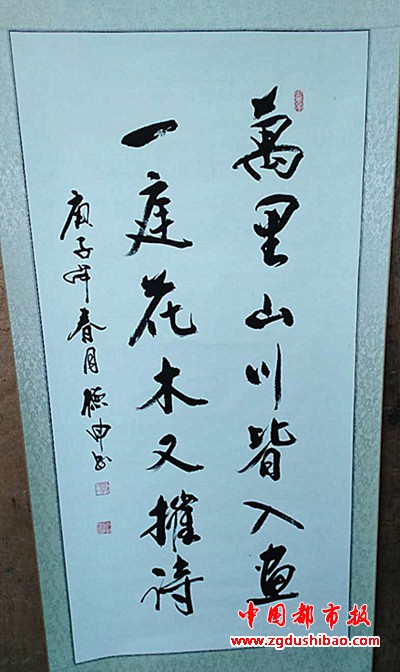 萬里山川皆入畫
一庭花木又摧诗
庚子年春月德申书
中国都市报
www.zgdushibao.com